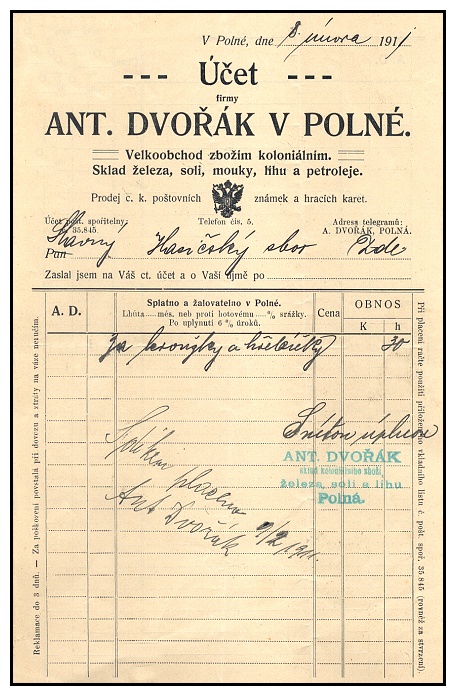 V Polné, dne 8. února 1911
--- Účet ---
firmy
ANT. DVOŘÁK V POLNÉ.
Velkoobchod zbožím koloniálním.
Sklad železa, soli, mouky, lihu a petroleje.
Prodej c. k. poštovních známek a hracích karet.
Účet pošt. spořitelny: 35.845.
Telefon čís. 5.
Adresa telegramů: A. DVOŘÁK, POLNÁ.
Slavný
Pan Hasičský sbor Zde
Zaslal jsem na Váš ct. účet a o Vaší újmě po
A. D.
Splatno a žalovatelno v Polné.
Lhůta ...... měs. neb proti hotovému ...... % srážky.
Po uplynutí 6 % úroků.
Cena
OBNOS
K h
Za a hřebíky 30
ANT. DVOŘÁK
sklad koloniálního zboží,
železa, soli a lihu
Polná.
placeno
Ant Dvořák 9/2 1911.
Reklamace do 3 dnů. — Za poškození povstalá při dovozu a ztráty na váze neručím.
Při placení račte použíti přiloženého vkladního lístu č. pošt. spoř. 35.845 (rovněž za stvrzení).